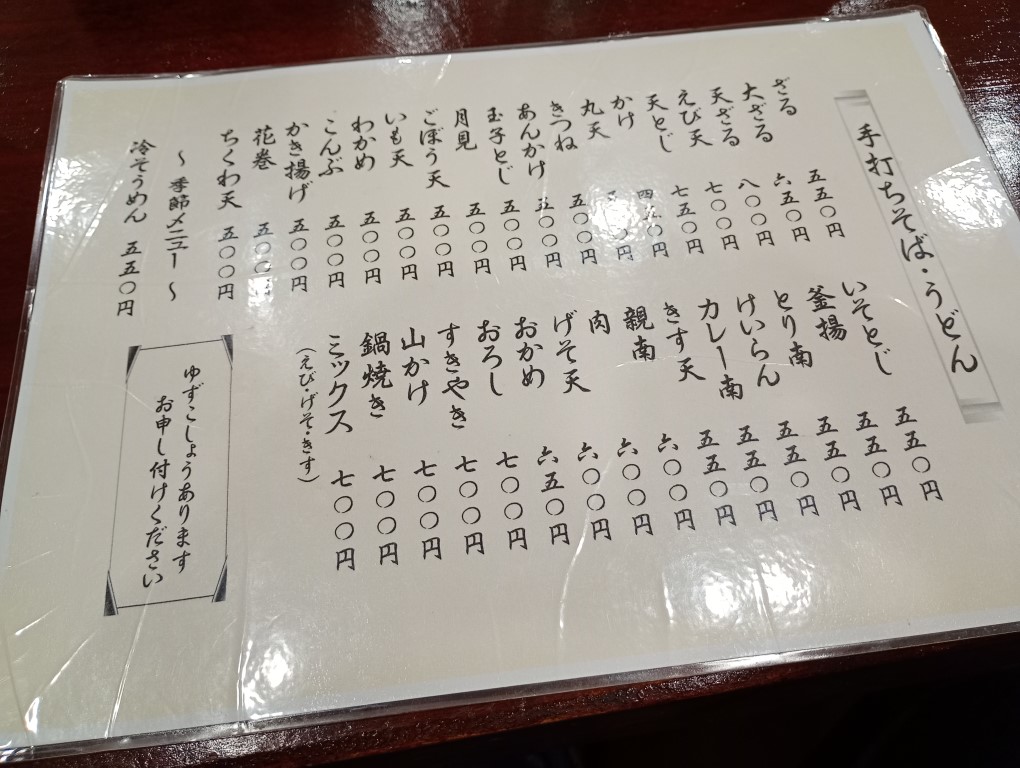 手打ちそば・うどん
ざる 五五〇円
大ざる 六五〇円
天ざる 八〇〇円
えび天 七〇〇円
天とじ 七五〇円
かけ 四五〇円
丸天 〇〇円
きつね 五〇〇円
あんかけ 五〇〇円
玉子とじ 五〇〇円
月見 五〇〇円
ごぼう天 五〇〇円
いも天 五〇〇円
わかめ 五〇〇円
こんぶ 五〇〇円
かき揚げ 五〇〇円
花巻 五〇〇円
ちくわ天 五〇〇円
～季節メニュー～
冷そうめん 五五〇円
いそとじ 五五〇円
釜揚 五五〇円
とり南 五五〇円
けいらん 五五〇円
カレー南 五五〇円
きす天 五五〇円
親南 六〇〇円
肉 六〇〇円
げそ天 六〇〇円
おかめ 六五〇円
おろし 七〇〇円
すきやき 七〇〇円
山かけ 七〇〇円
鍋焼き 七〇〇円
ミックス 七〇〇円
（えび・げそ・きす）
ゆずこしょうあります
お申し付けください